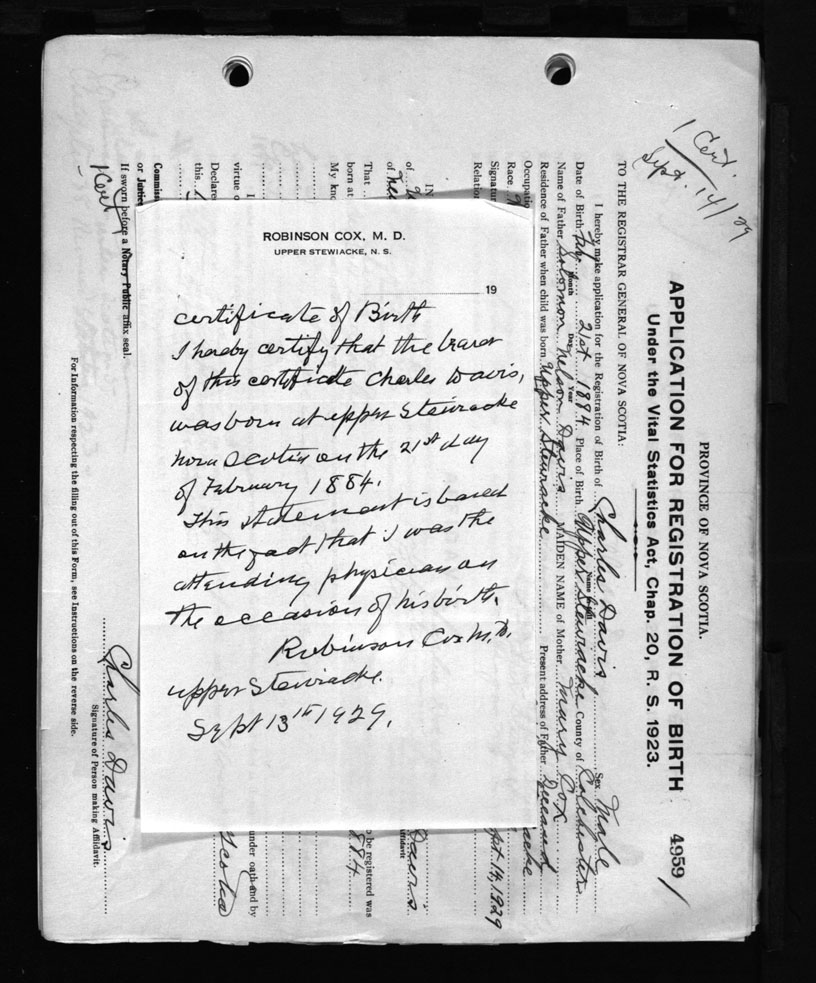 ROBINSON COX, M. D.
UPPER STEWIACKE, N. S.
19
certificate of Birth
I hereby certify that the bearer
of this certificate Charles Davis,
was born at upper Stewiacke
nova Scotia on the 21st day
of February 1884.
This statement is based
on the fact that I was the
attending physician on
the occasion of his birth.
Robinson Cox M.D.
upper Stewiacke.
Sept 13th 1929.
1 Cert.
Sept. 14/29
PROVINCE OF NOVA SCOTIA.
APPLICATION FOR REGISTRATION OF BIRTH 4959/
Under the Vital Statistics Act, Chap. 20, R. S. 1923.
TO THE REGISTRAR GENERAL OF NOVA SCOTIA:
I hereby make application for the Registration of Birth of Charles Davis Sex Male
Date of Birth 21st 1884 Place of Birth Upper Stewiacke County of Colchester
Month Day Year
Name of Father Solomon Nelson Davis MAIDEN NAME of Mother Mary Cox
Residence of Father when child was born Upper Stewiacke Present address of Father Deceased
Occupatio acke
Race
Signatur Sept. 14, 1929
Relation
IN
of Davis
of ffidavit
That o be registered was
born at 884
My kno
I under oath and by
virtue o
Declare Scotia
this
Commiss
or Justice
If sworn before a Notary Public affix seal.
1 Cert
Charles Davis
Signature of Person making Affidavit.
For Information respecting the filling out of this Form, see Instructions on the reverse side.